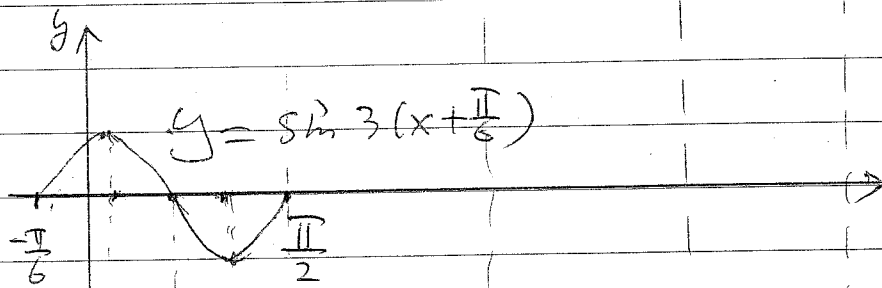 y
y = sin 3(x+π/6)
-π/6
π/2